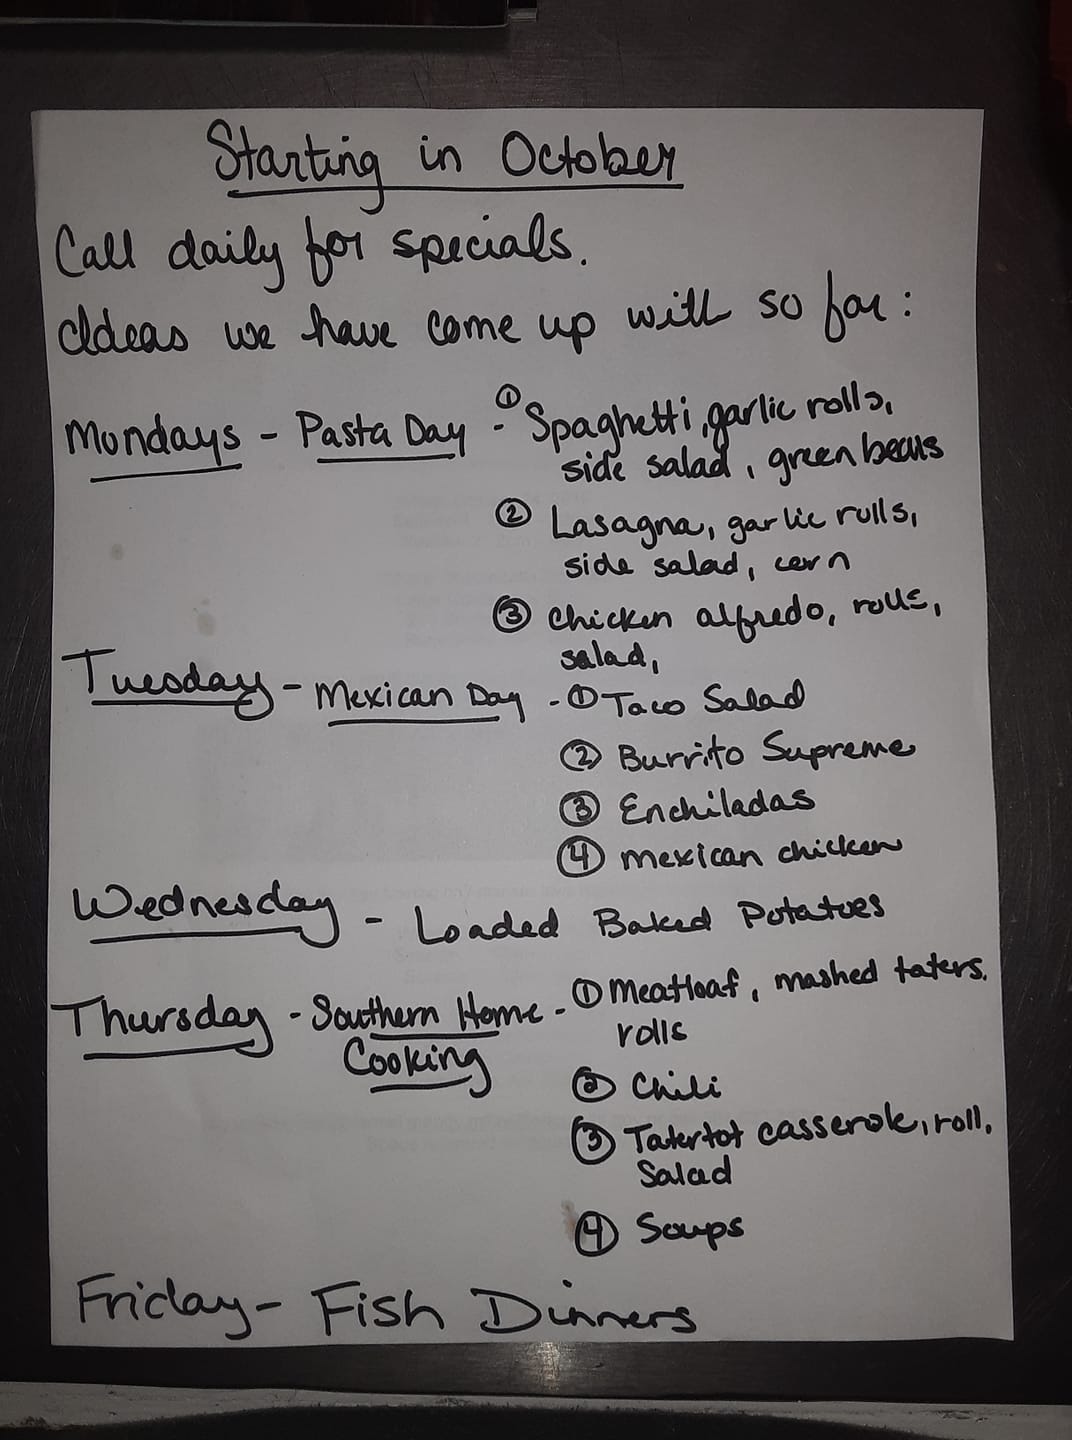 Starting in October
Call daily for specials.
Ideas we have come up with so far:
Mondays - Pasta Day - ① Spaghetti, garlic rolls,
side salad, green beans
② Lasagna, garlic rolls,
side salad, corn
③ chicken alfredo, rolls,
salad,
Tuesday - Mexican Day - ① Taco Salad
② Burrito Supreme
③ Enchiladas
④ mexican chicken
Wednesday - Loaded Baked Potatoes
Thursday - Southern Home - ① Meatloaf, mashed taters.
Cooking rolls
② Chili
③ Tatertot casserole, roll,
Salad
④ Soups
Friday - Fish Dinners